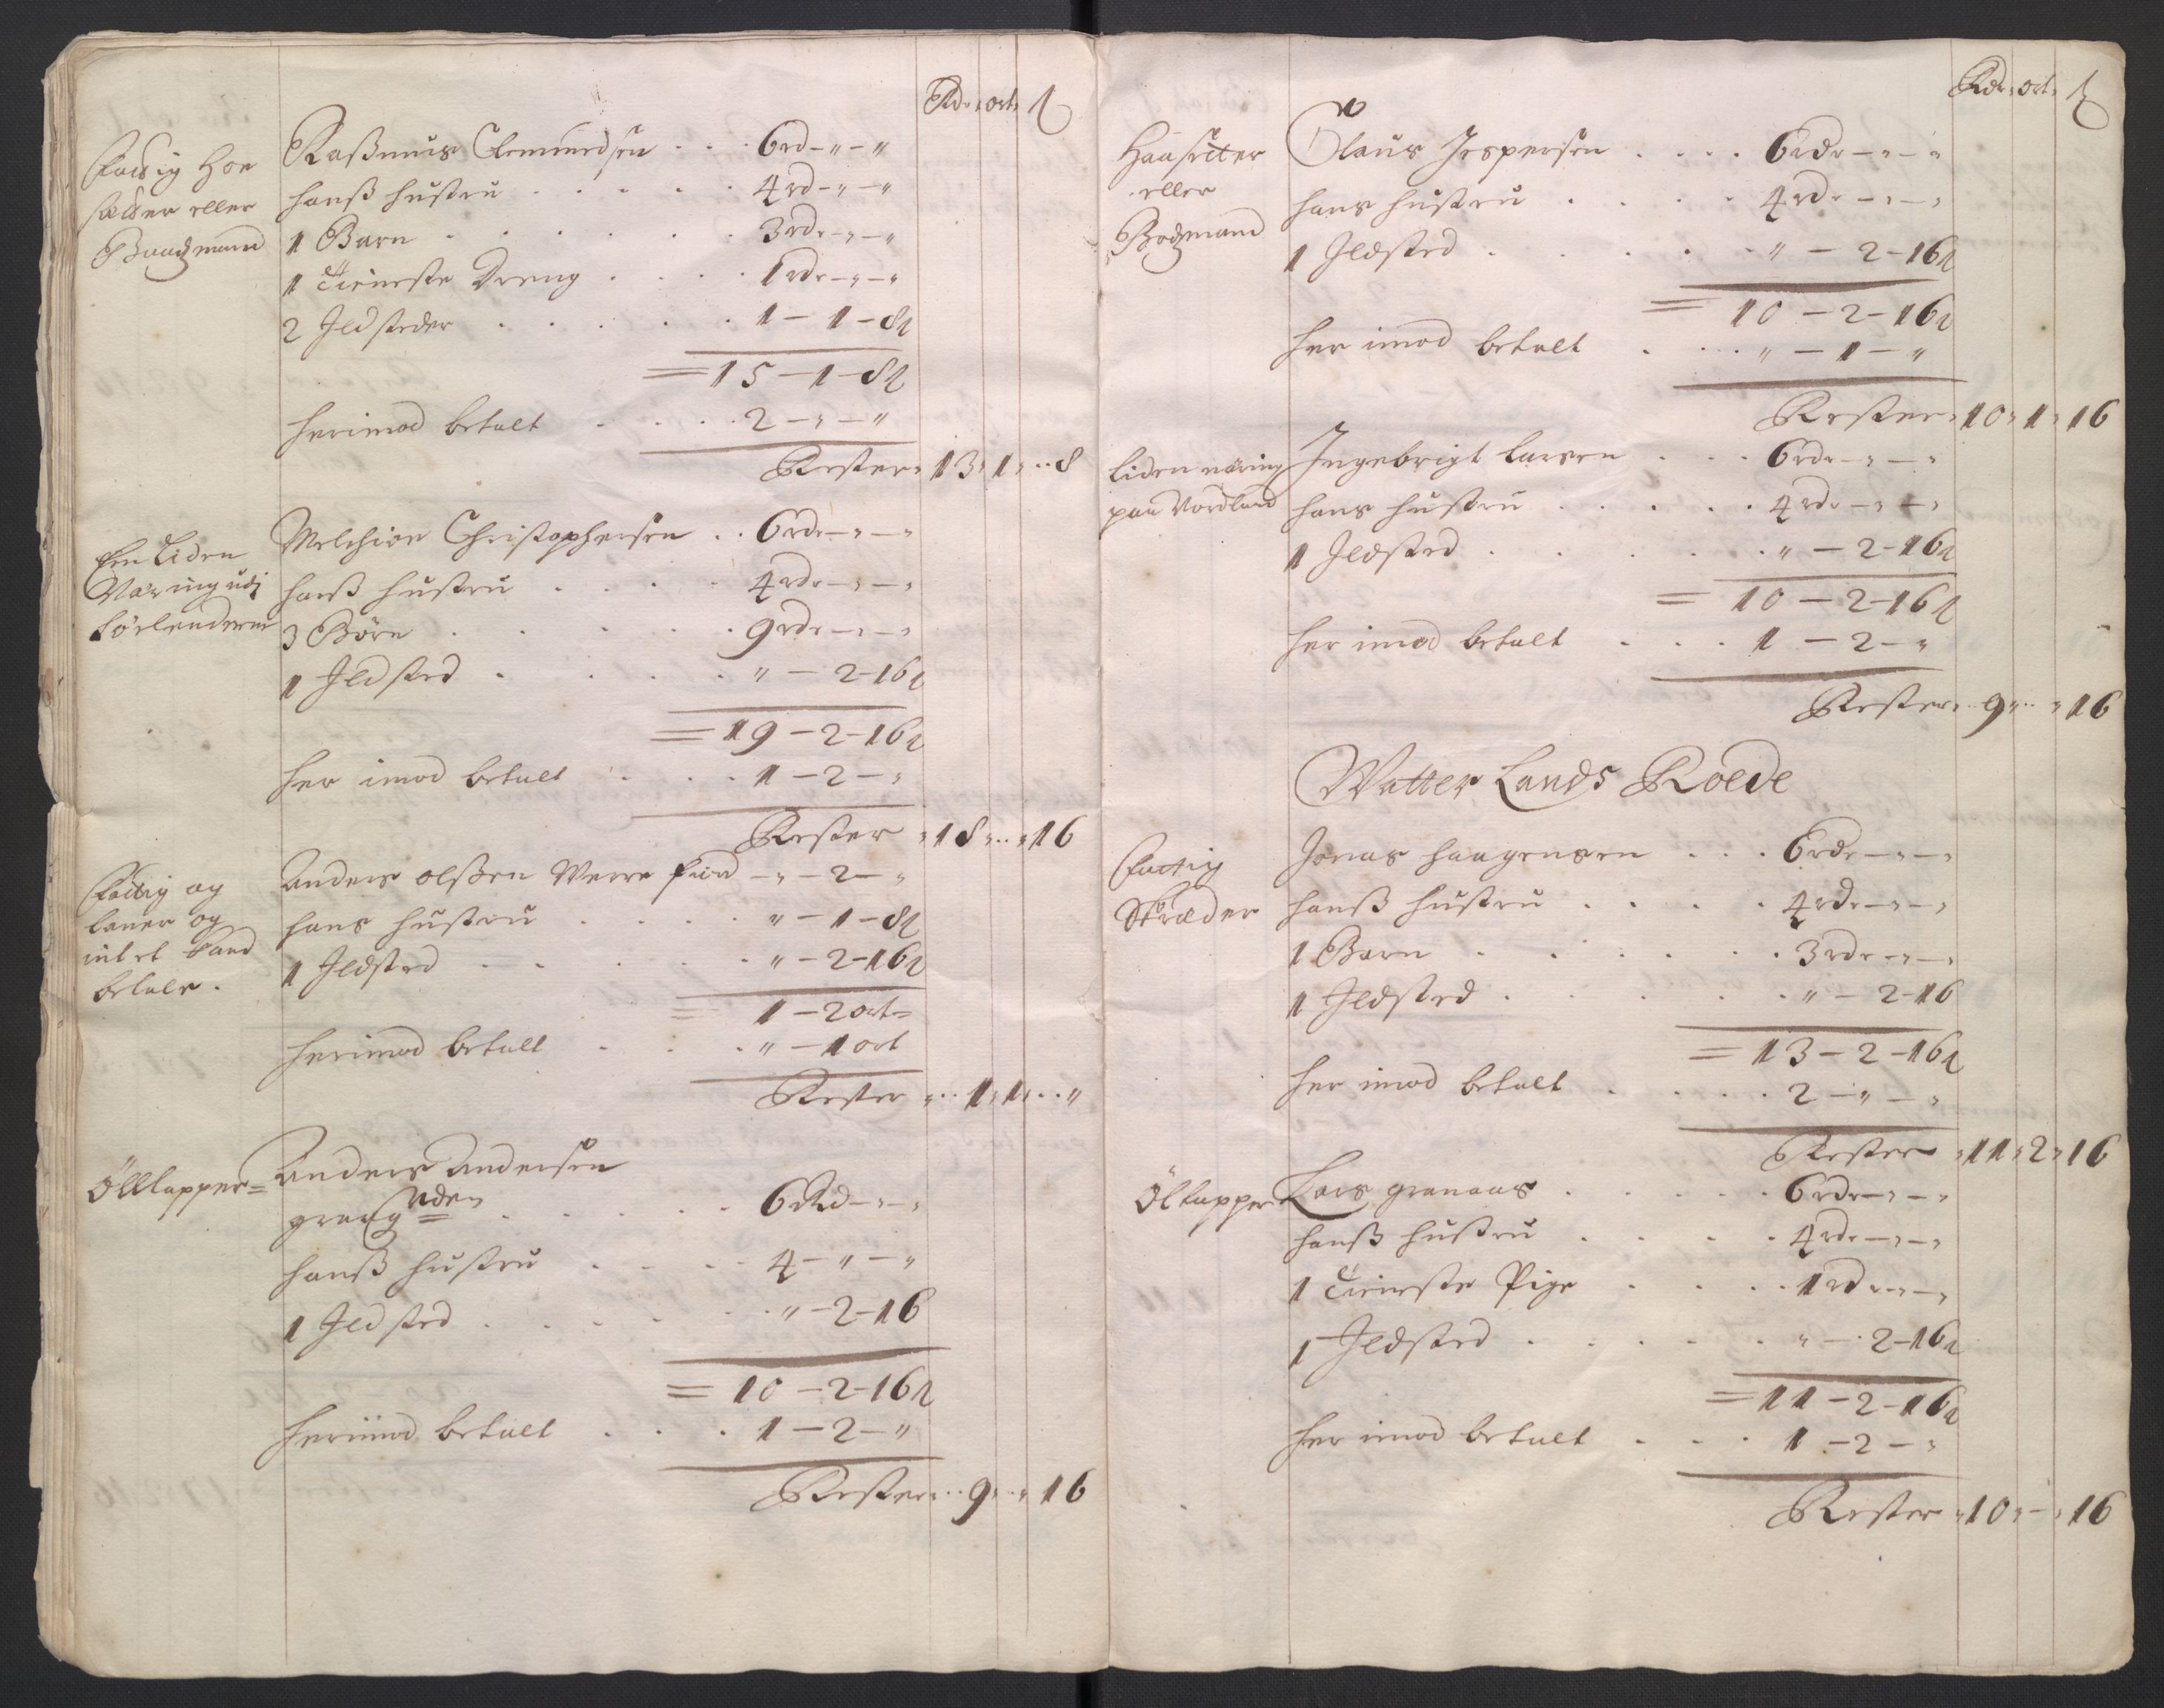 Rdr ort ß
Fattig Hoe
sætter eller
Baadzmand
Raßmus Clemmedsen . . . 6rd - " - "
hanß hustru . . . . . 4rd - " - "
1 Barn . . . . . . 3rdr - " - "
1 Tieneste Dreng . . . . 1rdr - " - "
2 Ildsteder . . . . . 1 - 1 - 8ß
= 15 - 1 - 8ß
herimod betalt . . . . 2 - " - "
Rester " 13 " 1 " 8
Een Liden
Næring udj
Sørlenderne
Melchior Christophersen . . 6rdr - " - "
hanß hustru . . . . 4rdr - " - "
3 Børn . . . . . . 9rdr - " - "
1 Ildsted . . . . . " - 2 - 16ß
= 19 - 2 - 16ß
her imod betalt . . . 1 - 2 - "
Rester " 18 " .. " 16
Fattig og
laner og
intet kand
betale .
Anders olßen Werre fiord - " - 2 - "
hans hustru . . . . " - 1 - 8ß
1 Ildsted . . . . . " - 2 - 16ß
= 1 - 2 ort -
herimod betalt . . . " - 1 ort
Rester " .. 1 " 1 " .. "
Ölltapper =
Anders Andersen
grong Uden = . . . . . 6 Rd - " - "
hanß hustru . . . . 4 - " - "
1 Ildsted . . . . . " - 2 - 16
= 10 - 2 - 16ß
herimod betalt . . . 1 - 2 - "
Rester " .. 9 " .. " 16
Rdr ort ß
Haasetter
eller
Bodzmand
Olaus Jespersen . . . . 6rdr - " - "
hans hustru . . . . 4rdr - " - "
1 Ildsted . . . . . " - 2 - 16ß
= 10 - 2 - 16ß
her imod betalt . . . " - 1 - "
Rester " 10 " 1 " 16
liden næring
paa Nordland
Ingebrigt Larsen . . . 6rdr - " - "
hans hustru . . . . . 4rdr - " - "
1 Ildsted . . . . . " - 2 - 16ß
= 10 - 2 - 16ß
her imod betalt . . . 1 - 2 - "
Rester " .. 9 " .. " 16
Watter Lands Roede
Fattig
Skræder
Jonas haagensen . . . 6rdr - " - "
hanß hustru . . . . 4rdr - " - "
1 Barn . . . . . . 3rdr - " - "
1 Ildsted . . . . . " - 2 - 16
= 13 - 2 - 16ß
her imod betalt . . . . 2 - " - "
Rester " 11 " 2 " 16
Öltapper
Lars granaas . . . . . 6rdr - " - "
hanß hustru . . . . 4rdr - " - "
1 Tieneste Pige . . . . 1rdr - " - "
1 Ildsted . . . . . " - 2 - 16ß
= 11 - 2 - 16ß
her imod betalt . . . 1 - 2 - "
Rester " 10 " - " 16